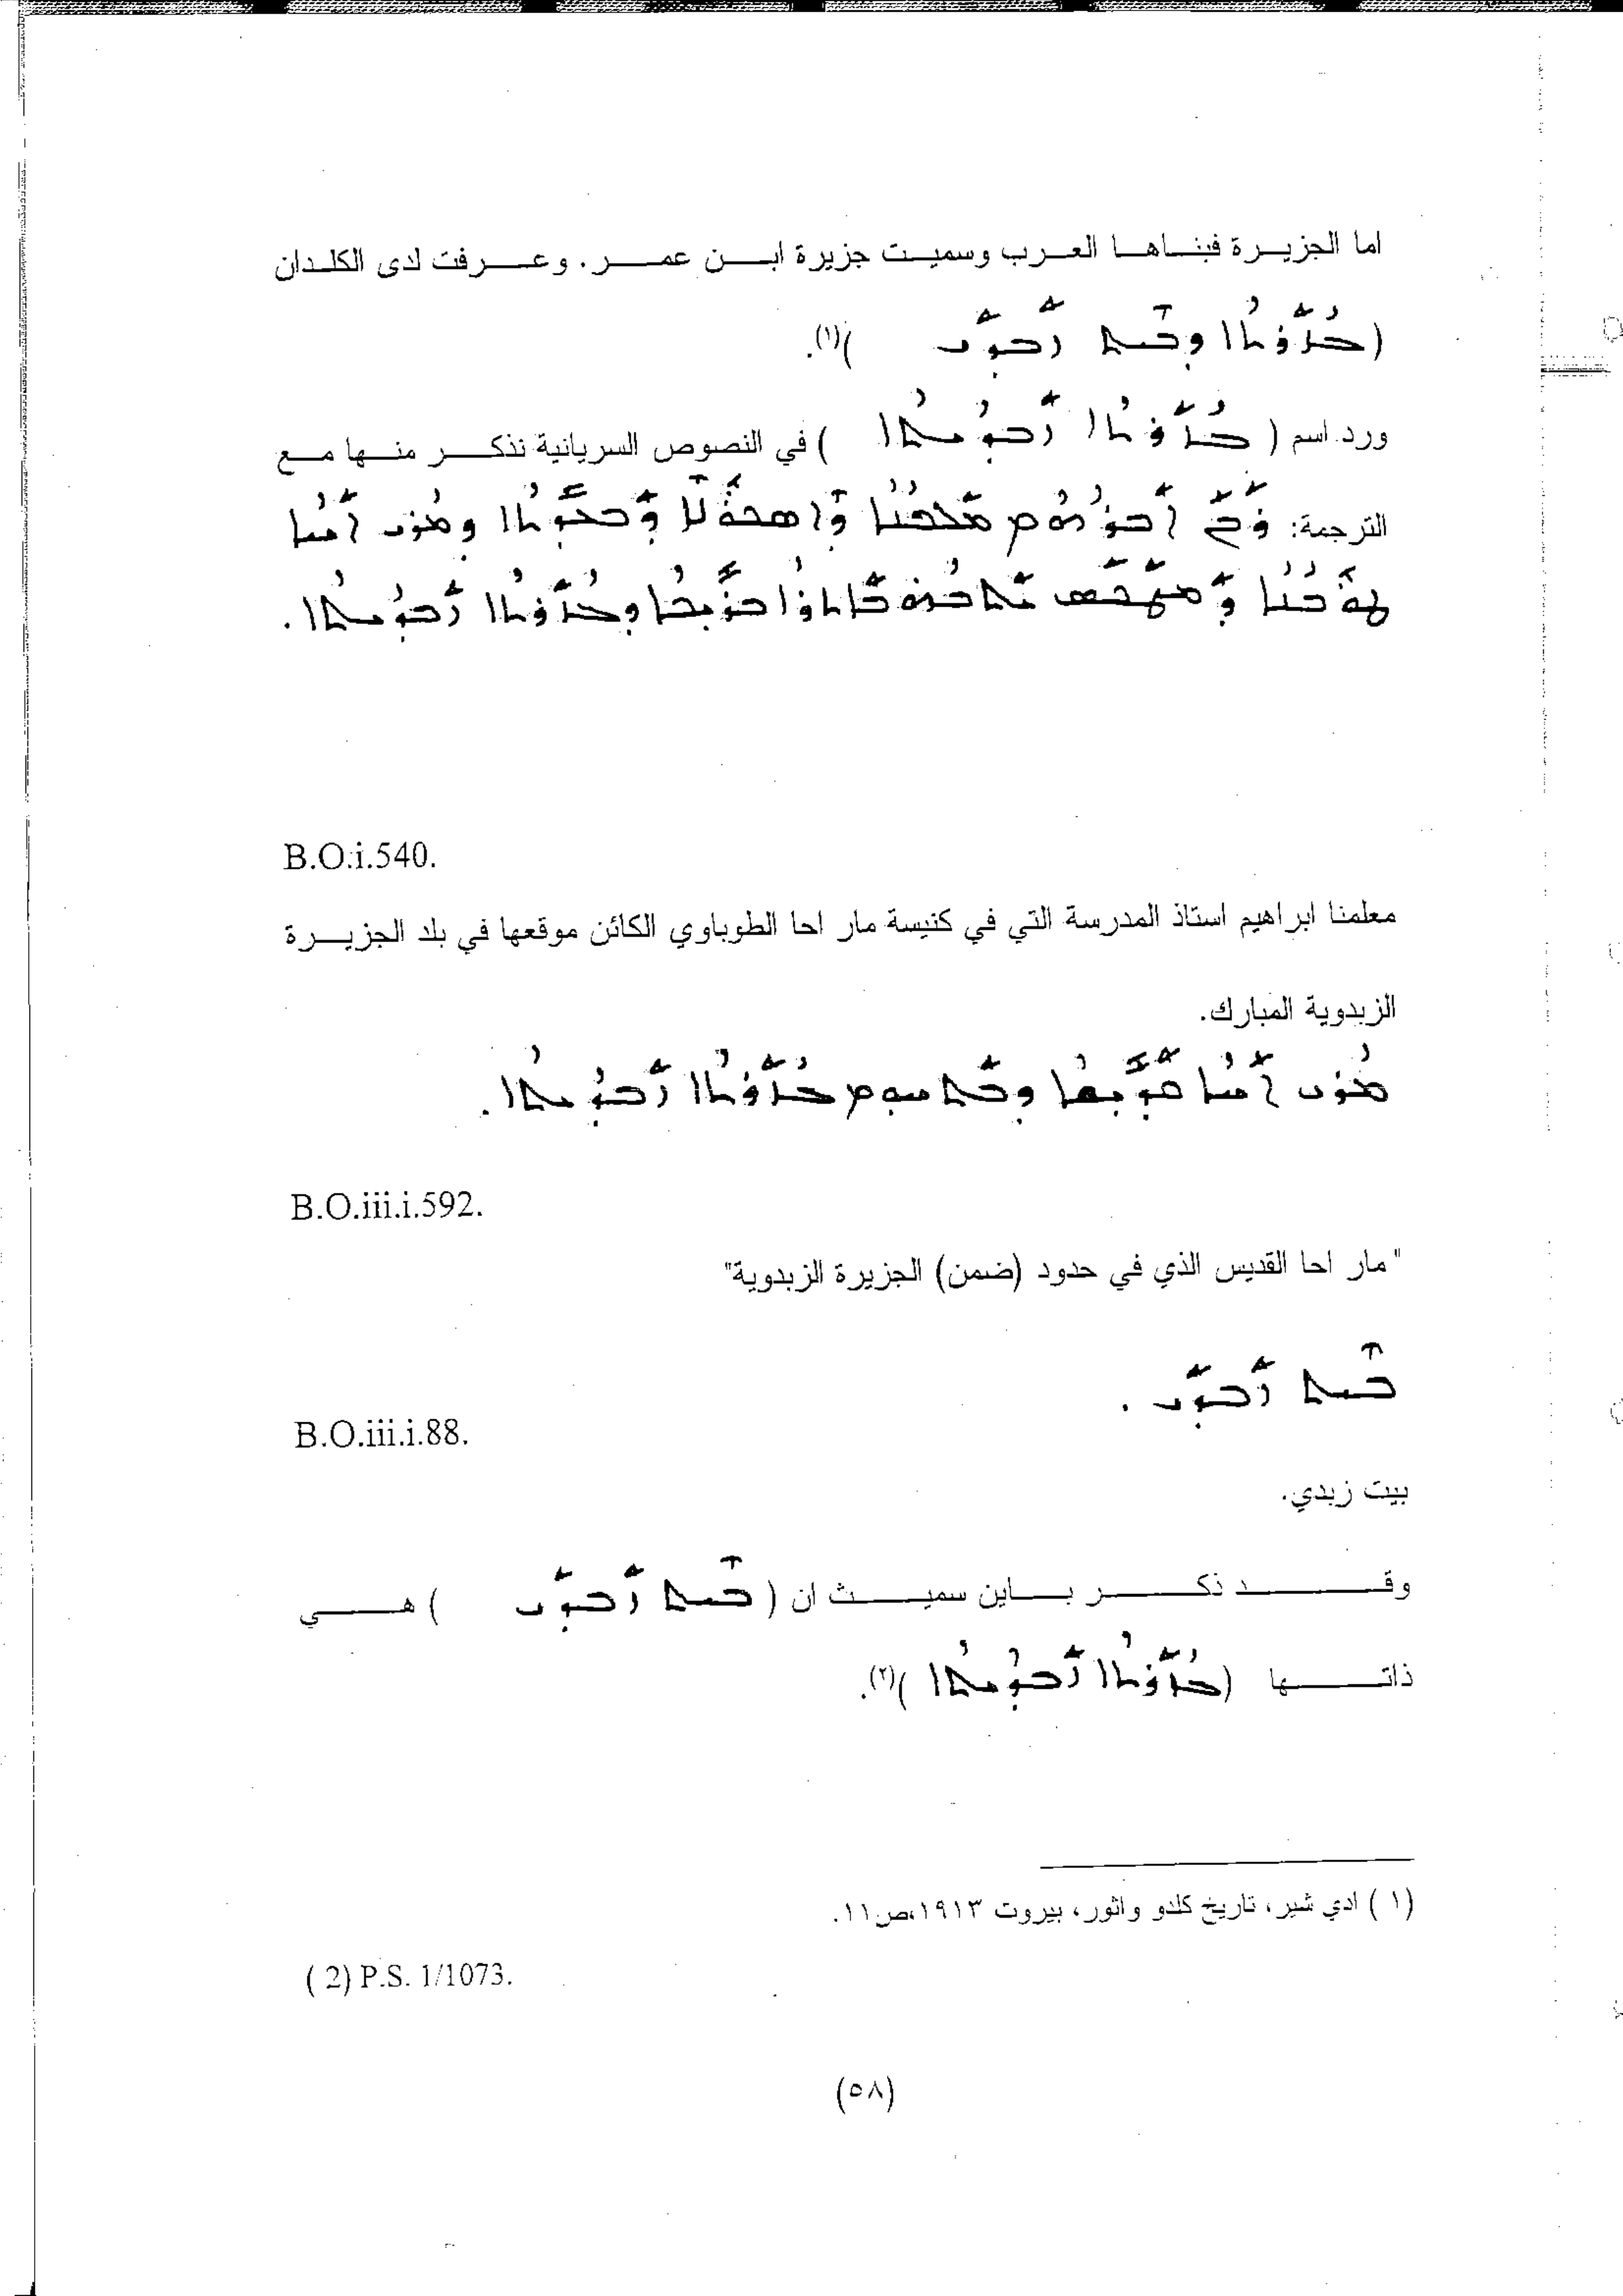 اما الجزيرة فبناها العرب وسميت جزيرة ابن عمر. وعرفت لدى الكلدان
(ܓܙܪܬܐ ܕܒܝܬ ܙܒܕܝ )(١).
ورد اسم ( ܓܙܪܬܐ ܙܒܕܝܬܐ ) في النصوص السريانية نذكر منها مع
الترجمة: ܪܒܢ ܐܒܪܗܡ ܡܠܦܢܐ ܕܐܣܟܘܠܐ ܕܒܥܕܬܐ ܕܡܪܝ ܐܚܐ
ܛܘܒܢܐ ܕܡܬܬܣܝܡ ܒܐܬܪܐ ܒܪܝܟܐ ܕܓܙܪܬܐ ܙܒܕܝܬܐ.
B.O.i.540.
معلمنا ابراهيم استاذ المدرسة التي في كنيسة مار احا الطوباوي الكائن موقعها في بلد الجزيرة
الزبدوية المبارك.
ܡܪܝ ܐܚܐ ܩܕܝܫܐ ܕܒܬܚܘܡ ܓܙܪܬܐ ܙܒܕܝܬܐ.
B.O.iii.i.592.
" مار احا القديس الذي في حدود (ضمن) الجزيرة الزبدوية"
ܒܝܬ ܙܒܕܝ .
B.O.iii.i.88.
بيت زبدي.
وقد ذكر باين سميث ان ( ܒܝܬ ܙܒܕܝ ) هي
ذاتها (ܓܙܪܬܐ ܙܒܕܝܬܐ )(٢).
(١ ) ادي شير، تاريخ كلدو واثور، بيروت ١٩١٣،ص١١.
( 2) P.S. 1/1073.
(٥٨)